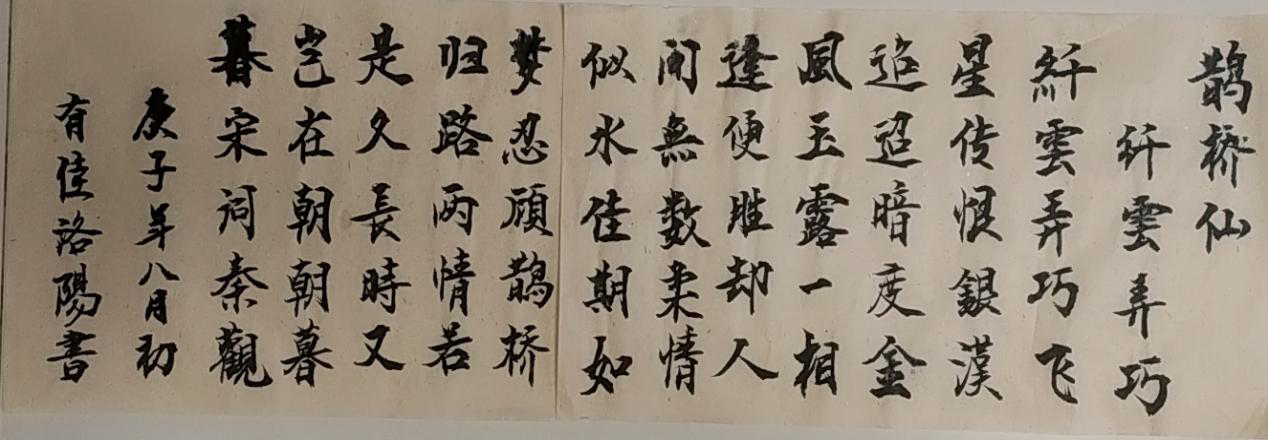 鹊桥仙
纤雲弄巧
纤雲弄巧飞
星传恨銀漢
迢迢暗度金
風玉露一相
逢便胜却人
间無数柔情
似水佳期如
梦忍顾鹊桥
归路两情若
是久長時又
岂在朝朝暮
暮宋词秦觀
庚子年八月初
有佳洛陽書